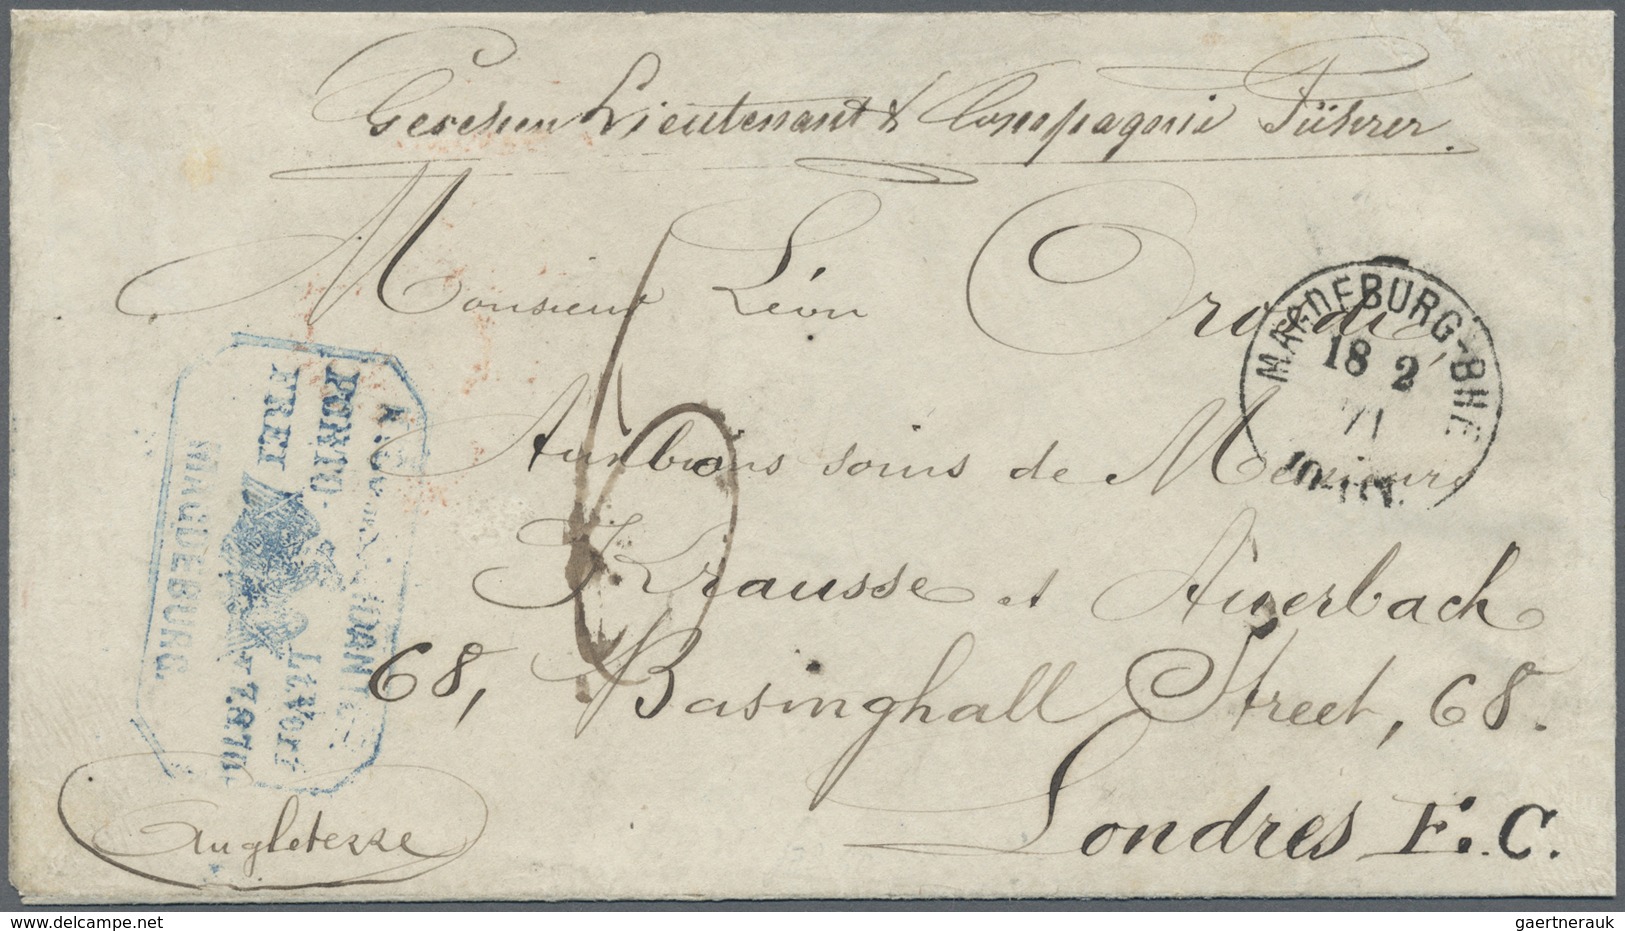 Gesehen Lieutenant & Compagnie Führer.
Monsieur Léon
MAGDEBURG-BHF
18 2
71
Aux bons soins de Messieurs
Krausse et Auerbach
68, Basinghall Street, 68.
Londres E.C.
Angleterre
PORTO
FREI
MAGDEBURG
6
www.delcampe.net
gaertnerauk